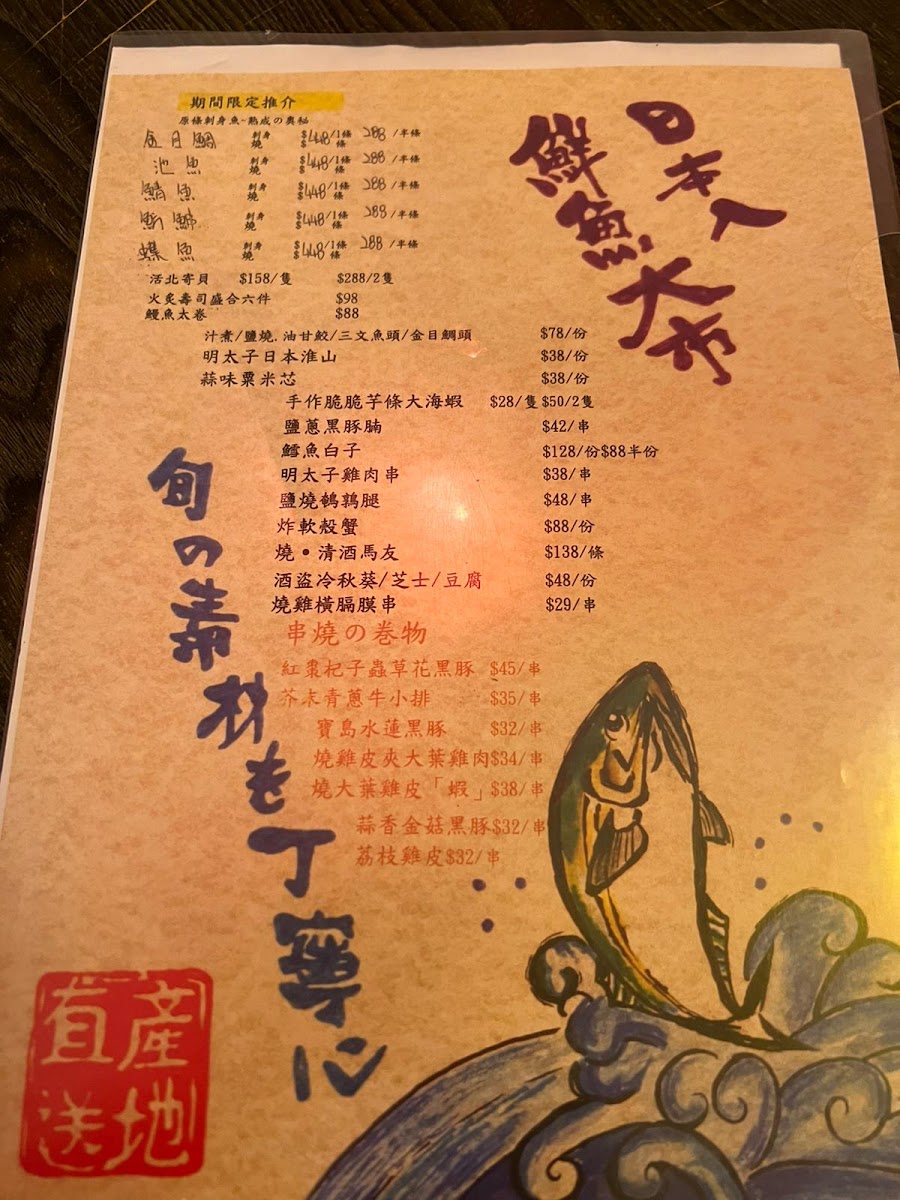 期間限定推介
原條刺身魚~熟成の奧秘
金目鯛 刺身 燒 $448/1條 $ 條 288/半條
池魚 刺身 燒 $448/1條 $ 條 288/半條
鯖魚 刺身 燒 $448/1條 $ 條 288/半條
刺身 燒 $448/1條 $ 條 288/半條
鰈魚 刺身 燒 $448/1條 $ 條 288/半條
活北寄貝 $158/隻 $288/2隻
火炙壽司盛合六件 $98
鰻魚太卷 $88
汁煮/鹽燒. 油甘鮫/三文魚頭/金目鯛頭 $78/份
明太子日本淮山 $38/份
蒜味粟米芯 $38/份
手作脆脆芋條大海蝦 $28/隻 $50/2隻
鹽蔥黑豚腩 $42/串
鱈魚白子 $128/份$88半份
明太子雞肉串 $38/串
鹽燒鵪鶉腿 $48/串
炸軟殼蟹 $88/份
燒•清酒馬友 $138/條
酒盜冷秋葵/芝士/豆腐 $48/份
燒雞橫膈膜串 $29/串
串燒の卷物
紅棗杞子蟲草花黑豚 $45/串
芥末青蔥牛小排 $35/串
寶島水蓮黑豚 $32/串
燒雞皮夾大葉雞肉$34/串
燒大葉雞皮「蝦」$38/串
蒜香金菇黑豚$32/串
荔枝雞皮$32/串
日本入
鮮魚大市
旬の素材を丁寧に
産地
直送